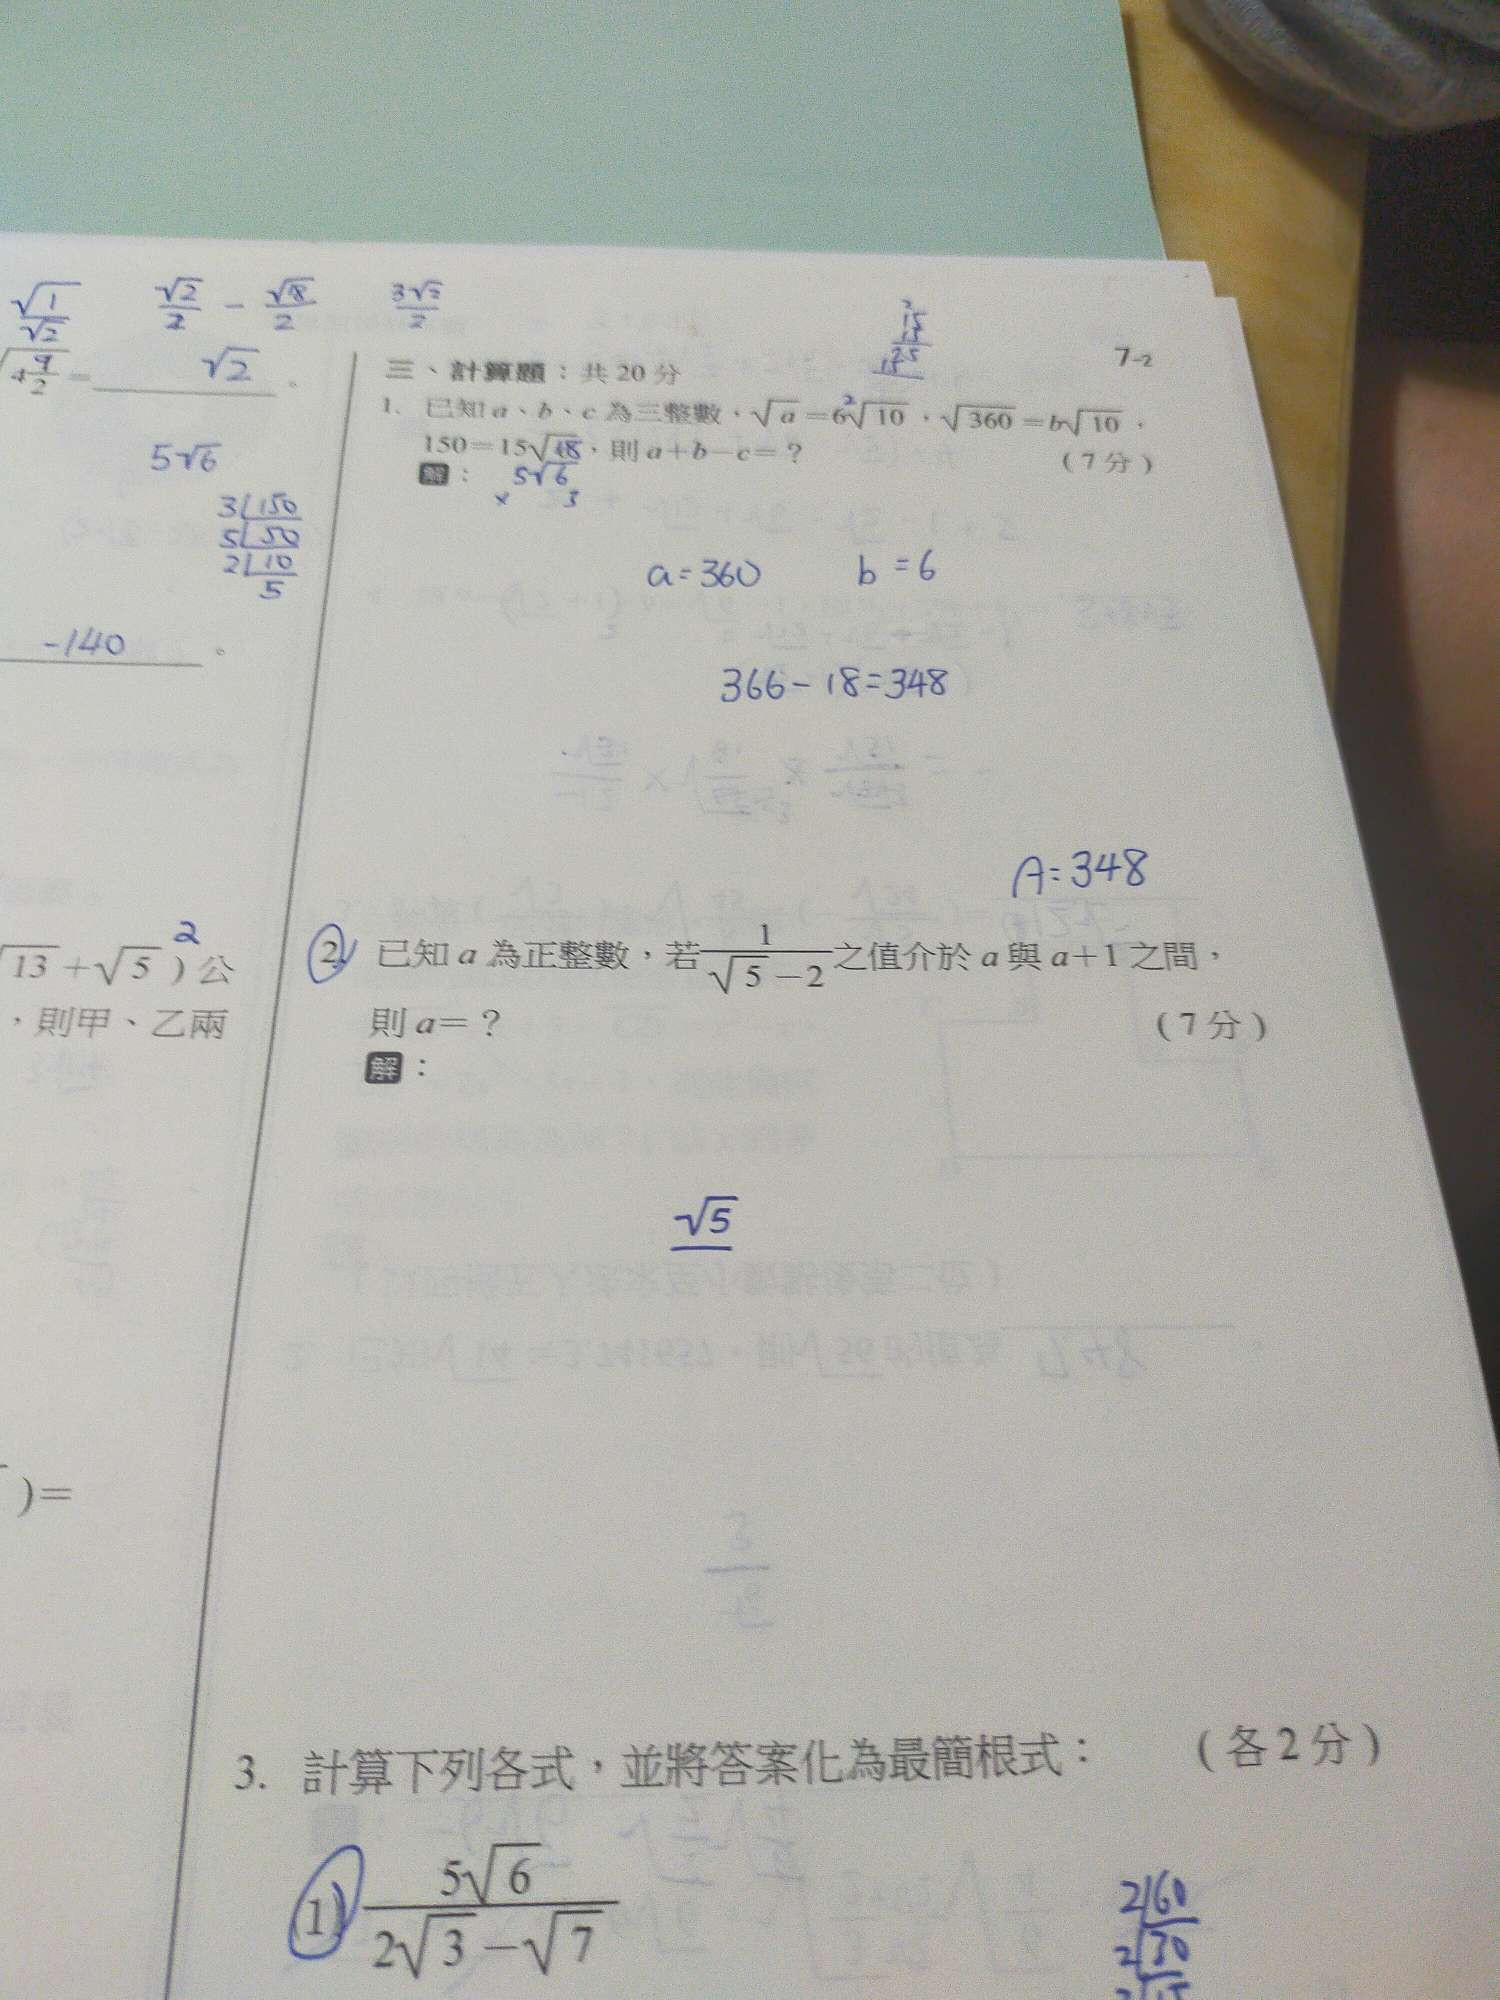 √(1/√2) √2/2 − √8/2 3√2/2
4 9/2 = √2 。
5√6
3 150
5 50
2 10
5
-140 。
√13 + √5 )² 公
，則甲、乙兩
)=
7-2
三、計算題：共 20 分
1. 已知 a、b、c 為三整數，√a =6√10，√360 =b√10，
150=15√ ，則 a+b−c=？ （7 分）
解：
5√6
× 3
a=360 b=6
366-18=348
A=348
2. 已知 a 為正整數，若 1/(√5 −2) 之值介於 a 與 a+1 之間，
則 a=？ （7 分）
解：
√5
3. 計算下列各式，並將答案化為最簡根式： （各 2 分）
1) 5√6/(2√3 −√7)
2 60
2 30
2 15